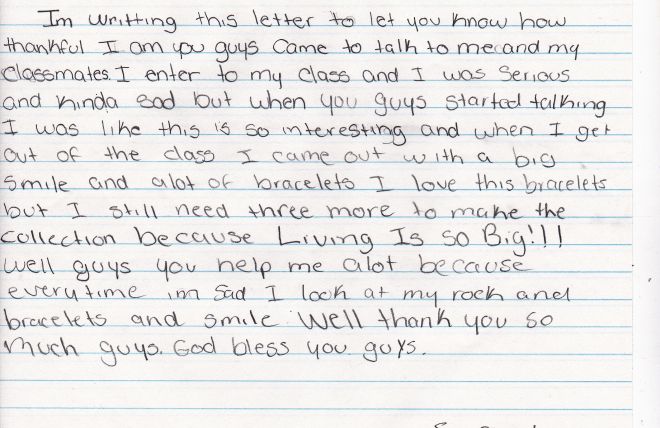 Im writting this letter to let you know how
thankful I am you guys came to talk to me and my
classmates. I enter to my class and I was serious
and kinda sad but when you guys started talking
I was like this is so interesting and when I get
out of the class I came out with a big
smile and alot of bracelets I love this bracelets
but I still need three more to make the
collection because Living Is So Big!!!
well guys you help me alot because
everytime im sad I look at my rock and
bracelets and smile. Well thank you so
much guys. God bless you guys.